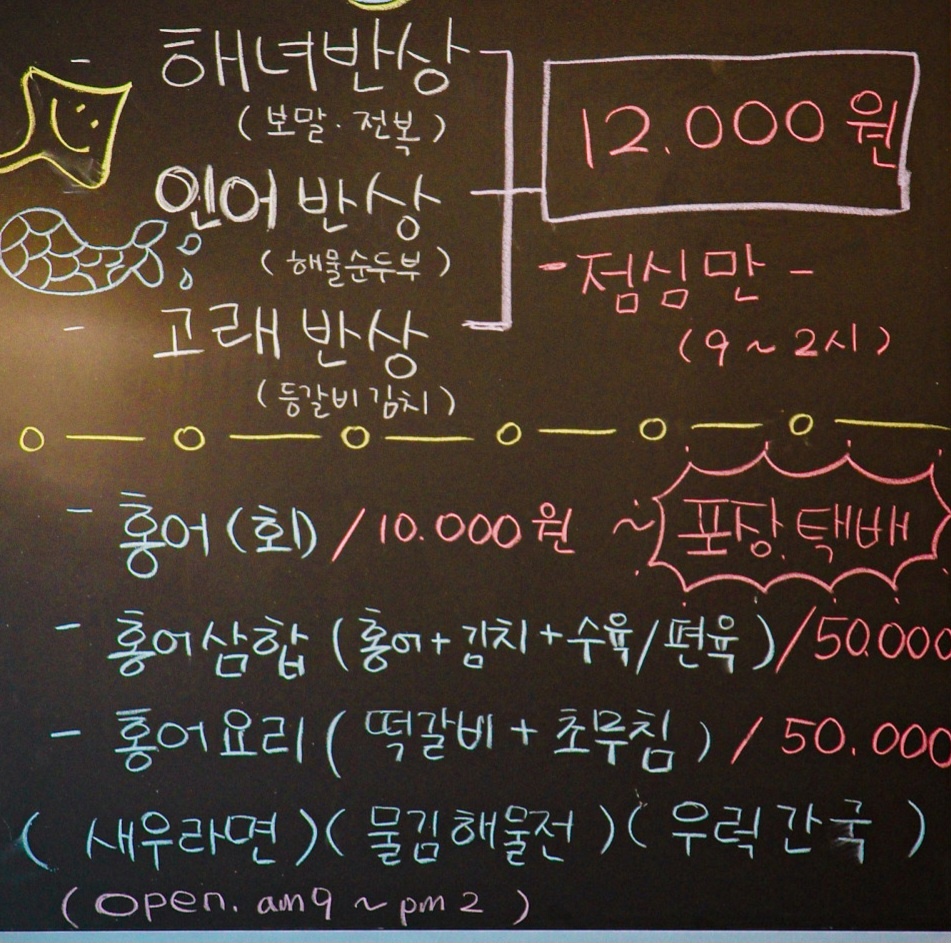 - 해녀반상
(보말·전복)
12.000원
- 인어 반상
(해물순두부)
- 점심만 -
(9~2시)
- 고래 반상
(등갈비 김치)
- 홍어(회)/10.000원 ~ 포장.택배
- 홍어삼합 (홍어+김치+수육/편육)/50.000
- 홍어요리( 떡갈비 + 초무침 ) / 50.000
( 새우라면 )( 물김해물전 )( 우럭간국 )
( open. am9 ~ pm 2 )